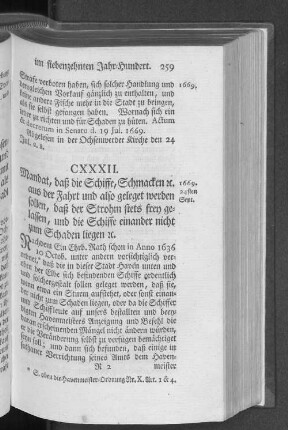 im siebenzehnten Jahr-Hundert. 259
Strafe verboten haben, sich solcher Handlung und 1669.
dergleichen Vorkauf gänzlich zu enthalten, und
keine andere Fische mehr in die Stadt zu bringen,
als sie selbst gefangen haben. Wornach sich ein
jeder zu richten und für Schaden zu hüten. Actum
& decretum in Senatu d. 19 Jul. 1669.
Abgelesen in der Ochsenwerder Kirche den 24
Jul. a. s.
CXXXII.
Mandat, daß die Schiffe, Schmacken ꝛc. 1669.
aus der Fahrt und also geleget werden 24sten
sollen, daß der Strohm stets frey ge- Sept.
lassen, und die Schiffe einander nicht
zum Schaden liegen ꝛc.
Nachdem Ein Ehrb. Rath schon in Anno 1636
10 Octob. unter andern vorsichtiglich ver-
ordnet, daß die in dieser Stadt Haven unten und
oben der Elbe sich befindenden Schiffe gedendlich
solcher gestalt sollen geleget werden, daß sie,
wenn etwa ein Sturm aufstünde, oder sonst einan-
der nicht zum Schaden liegen, oder da die Schiffer
oder Schiffleute auf unsers bestallten und beeyd-
igten Havenmeisters Anzeigung und Befehl die
bey ihnen erscheinenden Mängel nicht ändern würden,
der selben befugt seyn solle, besser zu vertäugen
schuldig, und dann sich befunden, daß einige in
seiner Verrichtung seines Amts dem Haven-
R 2 meister
* S. oben die Havenmeister-Ordnung Nr. X. Art. 1 & 4.